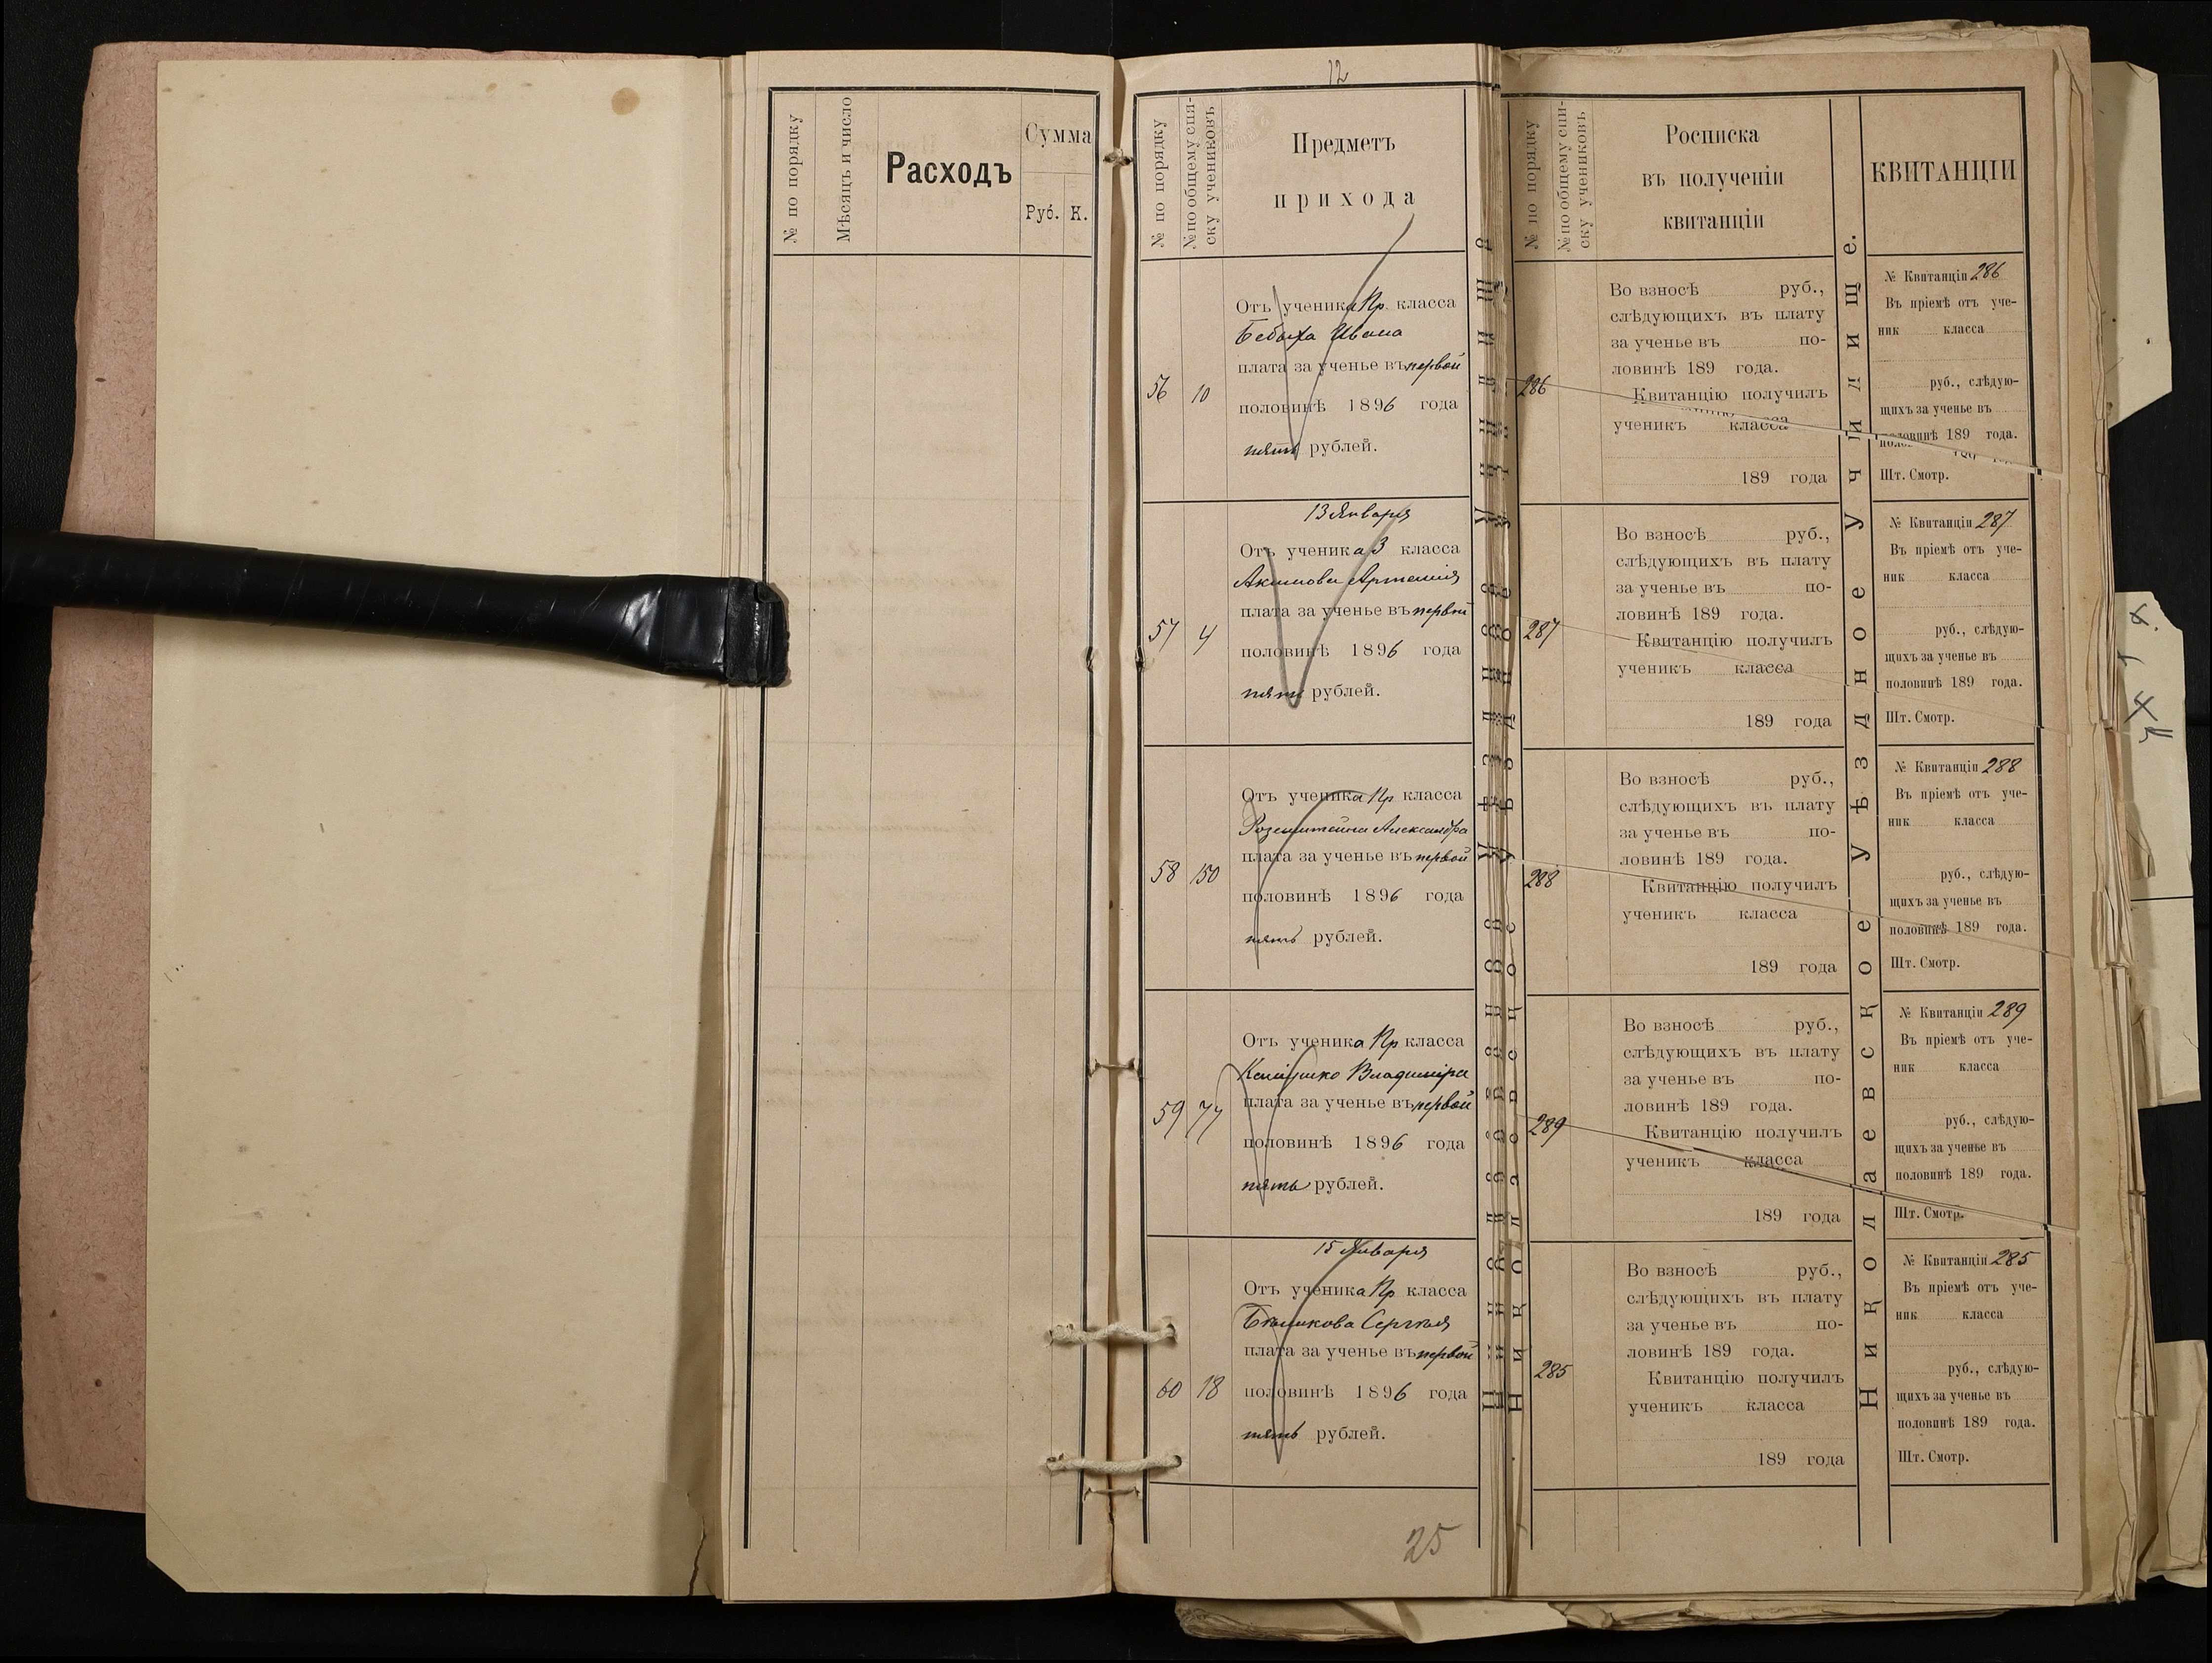 № по порядку
Мѣсяцъ и число
Расходъ
Сумма
Руб. К.
12
№ по порядку
№ по общему спи-
ску учениковъ
Предметъ
прихода
56 10
Отъ ученика Пр. класса
Ивана
плата за ученье въ первой
половинѣ 1896 года
пять рублей.
13 Января
57 4
Отъ ученика 3 класса
Акимова Артемія
плата за ученье въ первой
половинѣ 1896 года
пять рублей.
58 150
Отъ ученика Пр класса
Розенштейна Александра
плата за ученье въ первой
половинѣ 1896 года
пять рублей.
59 77
Отъ ученика Пр класса
Владиміра
плата за ученье въ первой
половинѣ 1896 года
пять рублей.
15 Января
60 18
Отъ ученика Пр класса
Сергѣя
плата за ученье въ первой
половинѣ 1896 года
пять рублей.
25
№ по порядку
№ по общему спи-
ску учениковъ
Росписка
въ полученіи
квитанціи
286
Во взносѣ руб.,
слѣдующихъ въ плату
за ученье въ по-
ловинѣ 189 года.
Квитанцію получилъ
ученикъ класса
189 года
287
Во взносѣ руб.,
слѣдующихъ въ плату
за ученье въ по-
ловинѣ 189 года.
Квитанцію получилъ
ученикъ класса
189 года
288
Во взносѣ руб.,
слѣдующихъ въ плату
за ученье въ по-
ловинѣ 189 года.
Квитанцію получилъ
ученикъ класса
189 года
289
Во взносѣ руб.,
слѣдующихъ въ плату
за ученье въ по-
ловинѣ 189 года.
Квитанцію получилъ
ученикъ класса
189 года
285
Во взносѣ руб.,
слѣдующихъ въ плату
за ученье въ по-
ловинѣ 189 года.
Квитанцію получилъ
ученикъ класса
189 года
Николаевское Уѣздное Училище.
КВИТАНЦІИ
№ Квитанціи 286
Въ пріемѣ отъ уче-
ник класса
руб., слѣдую-
щихъ за ученье въ
половинѣ 189 года.
Шт. Смотр.
№ Квитанціи 287
Въ пріемѣ отъ уче-
ник класса
руб., слѣдую-
щихъ за ученье въ
половинѣ 189 года.
Шт. Смотр.
№ Квитанціи 288
Въ пріемѣ отъ уче-
ник класса
руб., слѣдую-
щихъ за ученье въ
половинѣ 189 года.
Шт. Смотр.
№ Квитанціи 289
Въ пріемѣ отъ уче-
ник класса
руб., слѣдую-
щихъ за ученье въ
половинѣ 189 года.
Шт. Смотр.
№ Квитанціи 285
Въ пріемѣ отъ уче-
ник класса
руб., слѣдую-
щихъ за ученье въ
половинѣ 189 года.
Шт. Смотр.